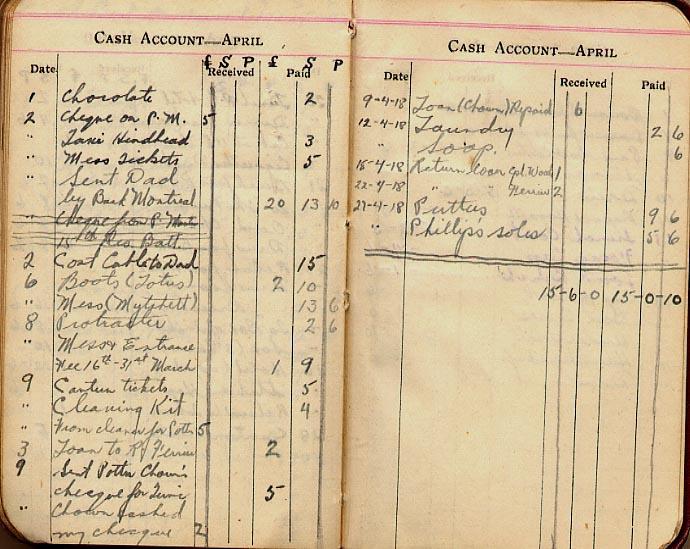 CASH ACCOUNT—APRIL
£ S P £ S P
Date Received Paid
1 Chocolate 2
2 Cheque on P. M. 5
" Taxi Hindhead 3
" Mess Tickets 5
" Sent Dad
by Bank Montreal 20 13 10
" Cheque from P.
15th Res. Batt.
2 Cost Cable to Dad 15
6 Boots (Lotus) 2 10
" Mess (Mytchett) 13 6
8 Protractor 2 6
" Mess & Entrance
Fee 16th-31st March 1 9
9 Canteen tickets 5
" Cleaning Kit 4
" From cleaner for Potts 5
3 Loan to R. Ferrier 2
9 Sent Potter Chown's
checque for 5
" Chown cashed
my checque 2
CASH ACCOUNT—APRIL
Date Received Paid
9-4-18 Loan (Chown) Repaid 6
12-4-18 Laundry 2 6
Soap. 6
15-4-18 Return loan Cpl. Wood 1
22-4-18 " " Ferrier 2
27-4-18 Puttus 9 6
" Phillips soles 5 6
15-6-0 15-0-10